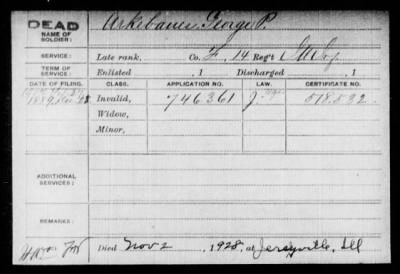 DEAD
NAME OF SOLDIER:
Arkebauer George P.
SERVICE:
Late rank, Co. F, 14 Reg't Ill Inf
TERM OF SERVICE:
Enlisted , 1 Discharged , 1
DATE OF FILING. CLASS. APPLICATION NO. LAW. CERTIFICATE NO.
1889 Invalid, 746361 518.532
Widow,
Minor,
ADDITIONAL SERVICES:
REMARKS:
Died Nov 2, 1928, at Jerseyville, Ill